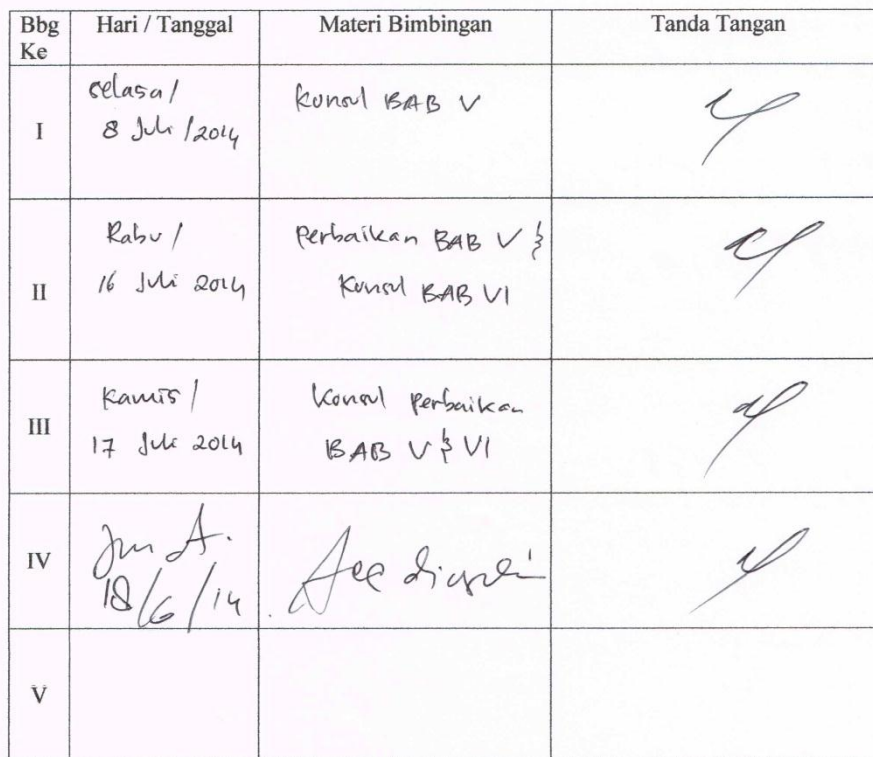 Bbg Ke
Hari / Tanggal
Materi Bimbingan
Tanda Tangan
I
selasa /
8 Juli / 2014
Konsul BAB V
II
Rabu /
16 Juli 2014
Perbaikan BAB V &
Konsul BAB VI
III
Kamis /
17 Juli 2014
Konsul perbaikan
BAB V & VI
IV
18/6/14
Acc
V